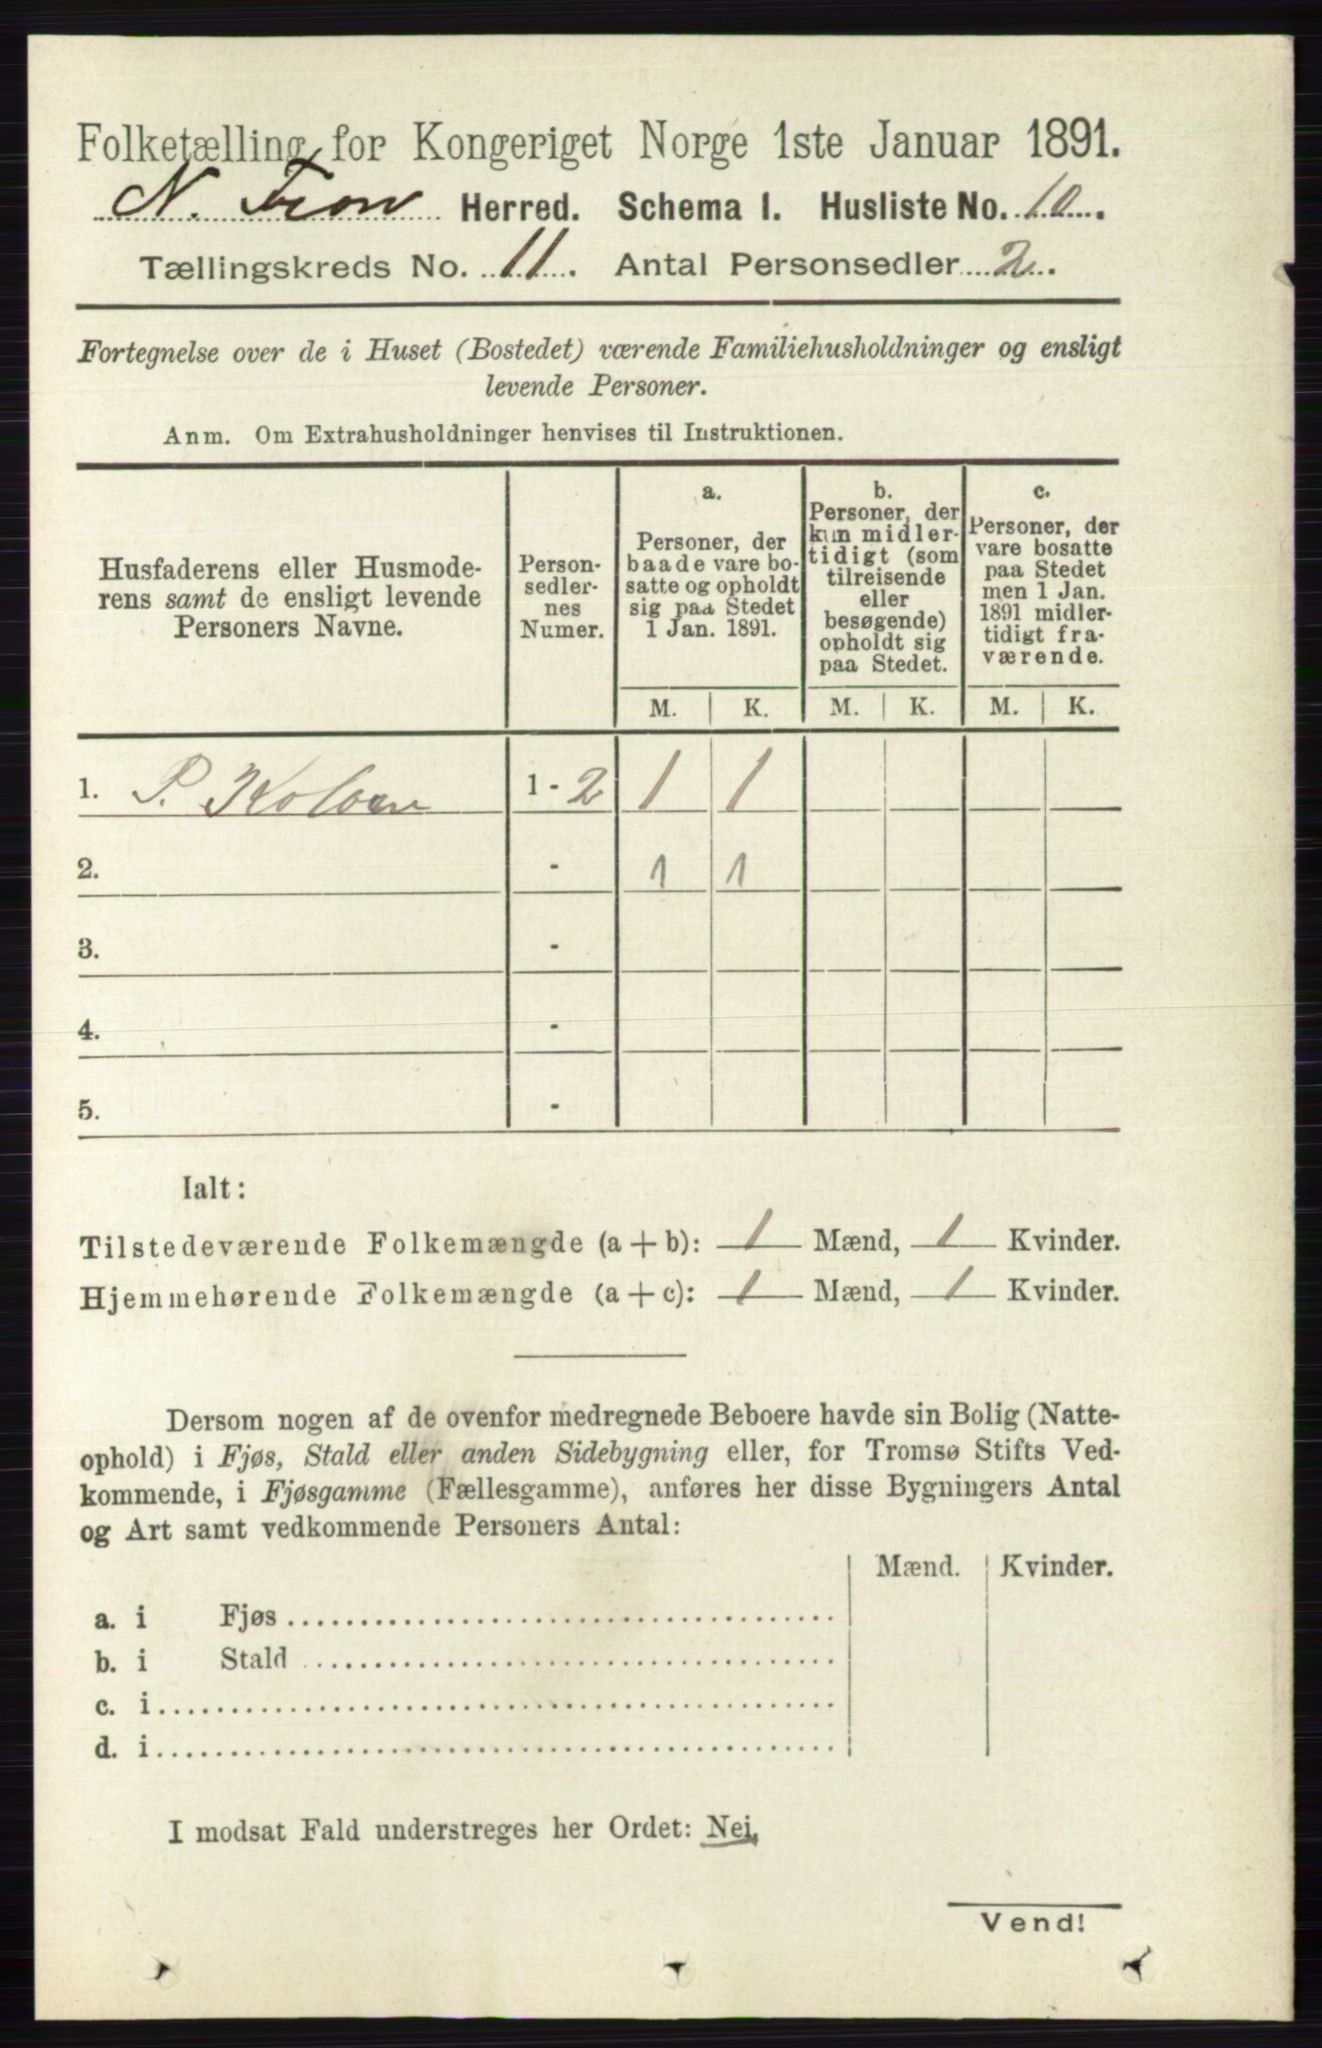 Folketælling for Kongeriget Norge 1ste Januar 1891.
N. Fron Herred. Schema 1. Husliste No. 10.
Tællingskreds No. 11. Antal Personsedler 2.
Fortegnelse over de i Huset (Bostedet) værende Familiehusholdninger og ensligt
levende Personer.
Anm. Om Extrahusholdninger henvises til Instruktionen.
Husfaderens eller Husmode-
rens samt de ensligt levende
Personers Navne.
Person-
sedler-
nes
Numer.
a.
Personer, der
baade vare bo-
satte og opholdt
sig paa Stedet
1 Jan. 1891.
b.
Personer, der
kun midler-
tidigt (som
tilreisende
eller
besøgende)
opholdt sig
paa Stedet.
c.
Personer, der
vare bosatte
paa Stedet
men 1 Jan.
1891 midler-
tidigt fra-
værende.
M. K. M. K. M. K.
1. P. Koloen 1 - 2 1 1
2. - 1 1
3. -
4. -
5. -
Ialt:
Tilstedeværende Folkemængde (a + b): 1 Mænd, 1 Kvinder.
Hjemmehørende Folkemængde (a + c): 1 Mænd, 1 Kvinder.
Dersom nogen af de ovenfor medregnede Beboere havde sin Bolig (Natte-
ophold) i Fjøs, Stald eller anden Sidebygning eller, for Tromsø Stifts Ved-
kommende, i Fjøsgamme (Fællesgamme), anføres her disse Bygningers Antal
og Art samt vedkommende Personers Antal:
Mænd. Kvinder.
a. i Fjøs
b. i Stald
c. i
d. i
I modsat Fald understreges her Ordet: Nei.
Vend!